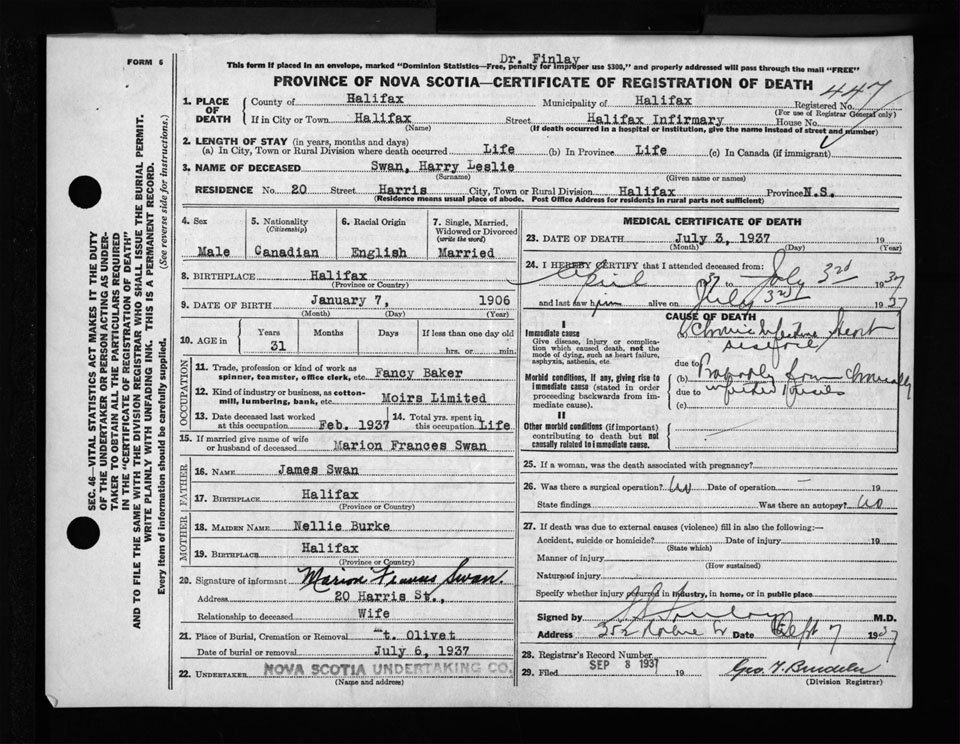 Dr. Finlay
FORM 6
This form if placed in an envelope, marked "Dominion Statistics—Free, penalty for improper use $300," and properly addressed will pass through the mail "FREE"
PROVINCE OF NOVA SCOTIA—CERTIFICATE OF REGISTRATION OF DEATH
447
1. PLACE OF DEATH
County of Halifax Municipality of Halifax Registered No.
(For use of Registrar General only)
If in City or Town Halifax Street Halifax Infirmary House No.
(Name) (If death occurred in a hospital or institution, give the name instead of street and number)
2. LENGTH OF STAY (in years, months and days)
(a) In City, Town or Rural Division where death occurred Life (b) In Province Life (c) In Canada (if immigrant)
3. NAME OF DECEASED Swan, Harry Leslie
(Surname) (Given name or names)
RESIDENCE No. 20 Street Harris City, Town or Rural Division Halifax Province N.S.
(Residence means usual place of abode. Post Office Address for residents in rural parts not sufficient)
4. Sex
Male
5. Nationality
(Citizenship)
Canadian
6. Racial Origin
English
7. Single, Married, Widowed or Divorced
(write the word)
Married
8. BIRTHPLACE Halifax
(Province or Country)
9. DATE OF BIRTH January 7, 1906
(Month) (Day) (Year)
10. AGE in
Years Months Days If less than one day old
31 hrs. or min.
OCCUPATION
11. Trade, profession or kind of work as
spinner, teamster, office clerk, etc. Fancy Baker
12. Kind of industry or business, as cotton-
mill, lumbering, bank, etc. Moirs Limited
13. Date deceased last worked
at this occupation Feb. 1937
14. Total yrs. spent in
this occupation Life
15. If married give name of wife
or husband of deceased Marion Frances Swan
FATHER
16. NAME James Swan
17. BIRTHPLACE Halifax
(Province or Country)
MOTHER
18. MAIDEN NAME Nellie Burke
19. BIRTHPLACE Halifax
(Province or Country)
20. Signature of informant Marion Frances Swan.
Address 20 Harris St.,
Relationship to deceased Wife
21. Place of Burial, Cremation or Removal t. Olivet
Date of burial or removal July 6, 1937
22. UNDERTAKER NOVA SCOTIA UNDERTAKING CO.
(Name and address)
MEDICAL CERTIFICATE OF DEATH
23. DATE OF DEATH July 3, 1937 19
(Month) (Day) (Year)
24. I HEREBY CERTIFY that I attended deceased from:
April 37 to July 3rd 1937
and last saw him alive on July 3rd 1937
CAUSE OF DEATH
I
Immediate cause
Give disease, injury or complica-
tion which caused death, not the
mode of dying, such as heart failure,
asphyxia, asthenia, etc.
Chronic Infective heart
disease
due to
Morbid conditions, if any, giving rise to
immediate cause (stated in order
proceeding backwards from im-
mediate cause).
(b) Probably from chronically
infected tonsils
due to
(c)
II
Other morbid conditions (if important)
contributing to death but not
causally related to immediate cause.
25. If a woman, was the death associated with pregnancy?
26. Was there a surgical operation? No Date of operation — 19
State findings Was there an autopsy? No
27. If death was due to external causes (violence) fill in also the following:—
Accident, suicide or homicide? Date of injury 19
(State which)
Manner of injury
(How sustained)
Nature of injury
Specify whether injury occurred in industry, in home, or in public place
Signed by Finlay M.D.
Address 352 Date Sept 7 1937
28. Registrar's Record Number
29. Filed SEP 8 1937 19
(Division Registrar)
SEC. 46—VITAL STATISTICS ACT MAKES IT THE DUTY
OF THE UNDERTAKER OR PERSON ACTING AS UNDER-
TAKER TO OBTAIN ALL THE PARTICULARS REQUIRED
IN THE "CERTIFICATE OF REGISTRATION OF DEATH"
AND TO FILE THE SAME WITH THE DIVISION REGISTRAR WHO SHALL ISSUE THE BURIAL PERMIT.
WRITE PLAINLY WITH UNFADING INK. THIS IS A PERMANENT RECORD.
Every item of information should be carefully supplied. (See reverse side for instructions.)